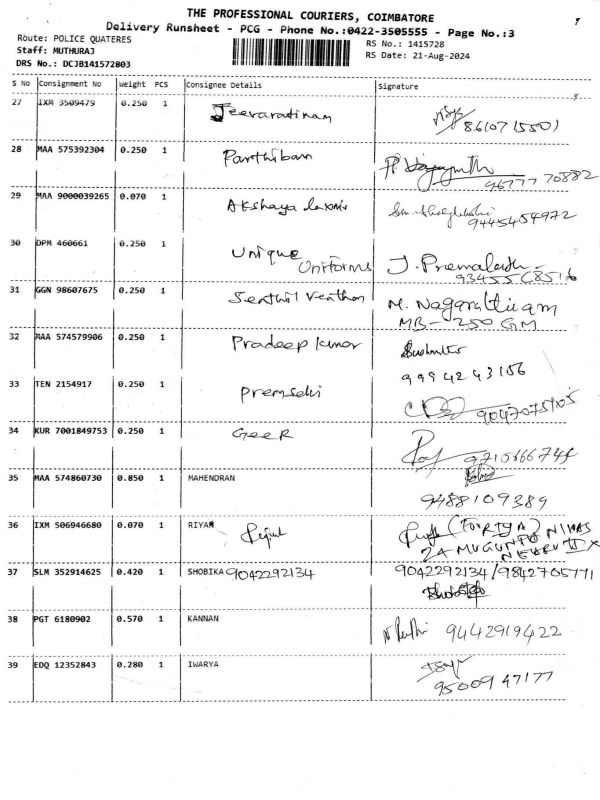 THE PROFESSIONAL COURIERS, COIMBATORE
Delivery Runsheet - PCG - Phone No.:0422-3505555 - Page No.:3
Route: POLICE QUATERES
RS No.: 1415728
Staff: MUTHURAJ
RS Date: 21-Aug-2024
DRS No.: DCJB141572803
S No Consignment No Weight PCS Consignee Details Signature
27 IXM 3509479 0.250 1 Jeevaratinam
8610715501
28 MAA 575392304 0.250 1 Parthiban
9677770882
29 MAA 9000039265 0.070 1 Akshaya laxmi
9445454972
30 DPM 460661 0.250 1 Unique Uniforms J. Premalatha
31 GGN 98607675 0.250 1 Senthil Venthan M. Nagarattinam
MB-250 GM
32 MAA 574579906 0.250 1 Pradeep kumar
9994243156
33 TEN 2154917 0.250 1 Premselvi
34 KUR 7001849753 0.250 1 GeeR
35 MAA 574860730 0.850 1 MAHENDRAN
9488109389
36 IXM 506946680 0.070 1 RIYAR
2A MUGUNTO NEHRU
37 SLM 352914625 0.420 1 SHOBIKA 9042292134 9042292134/9842705771
38 PGT 6180902 0.570 1 KANNAN 9442919422
39 EDQ 12352843 0.280 1 IWARYA
9500947177